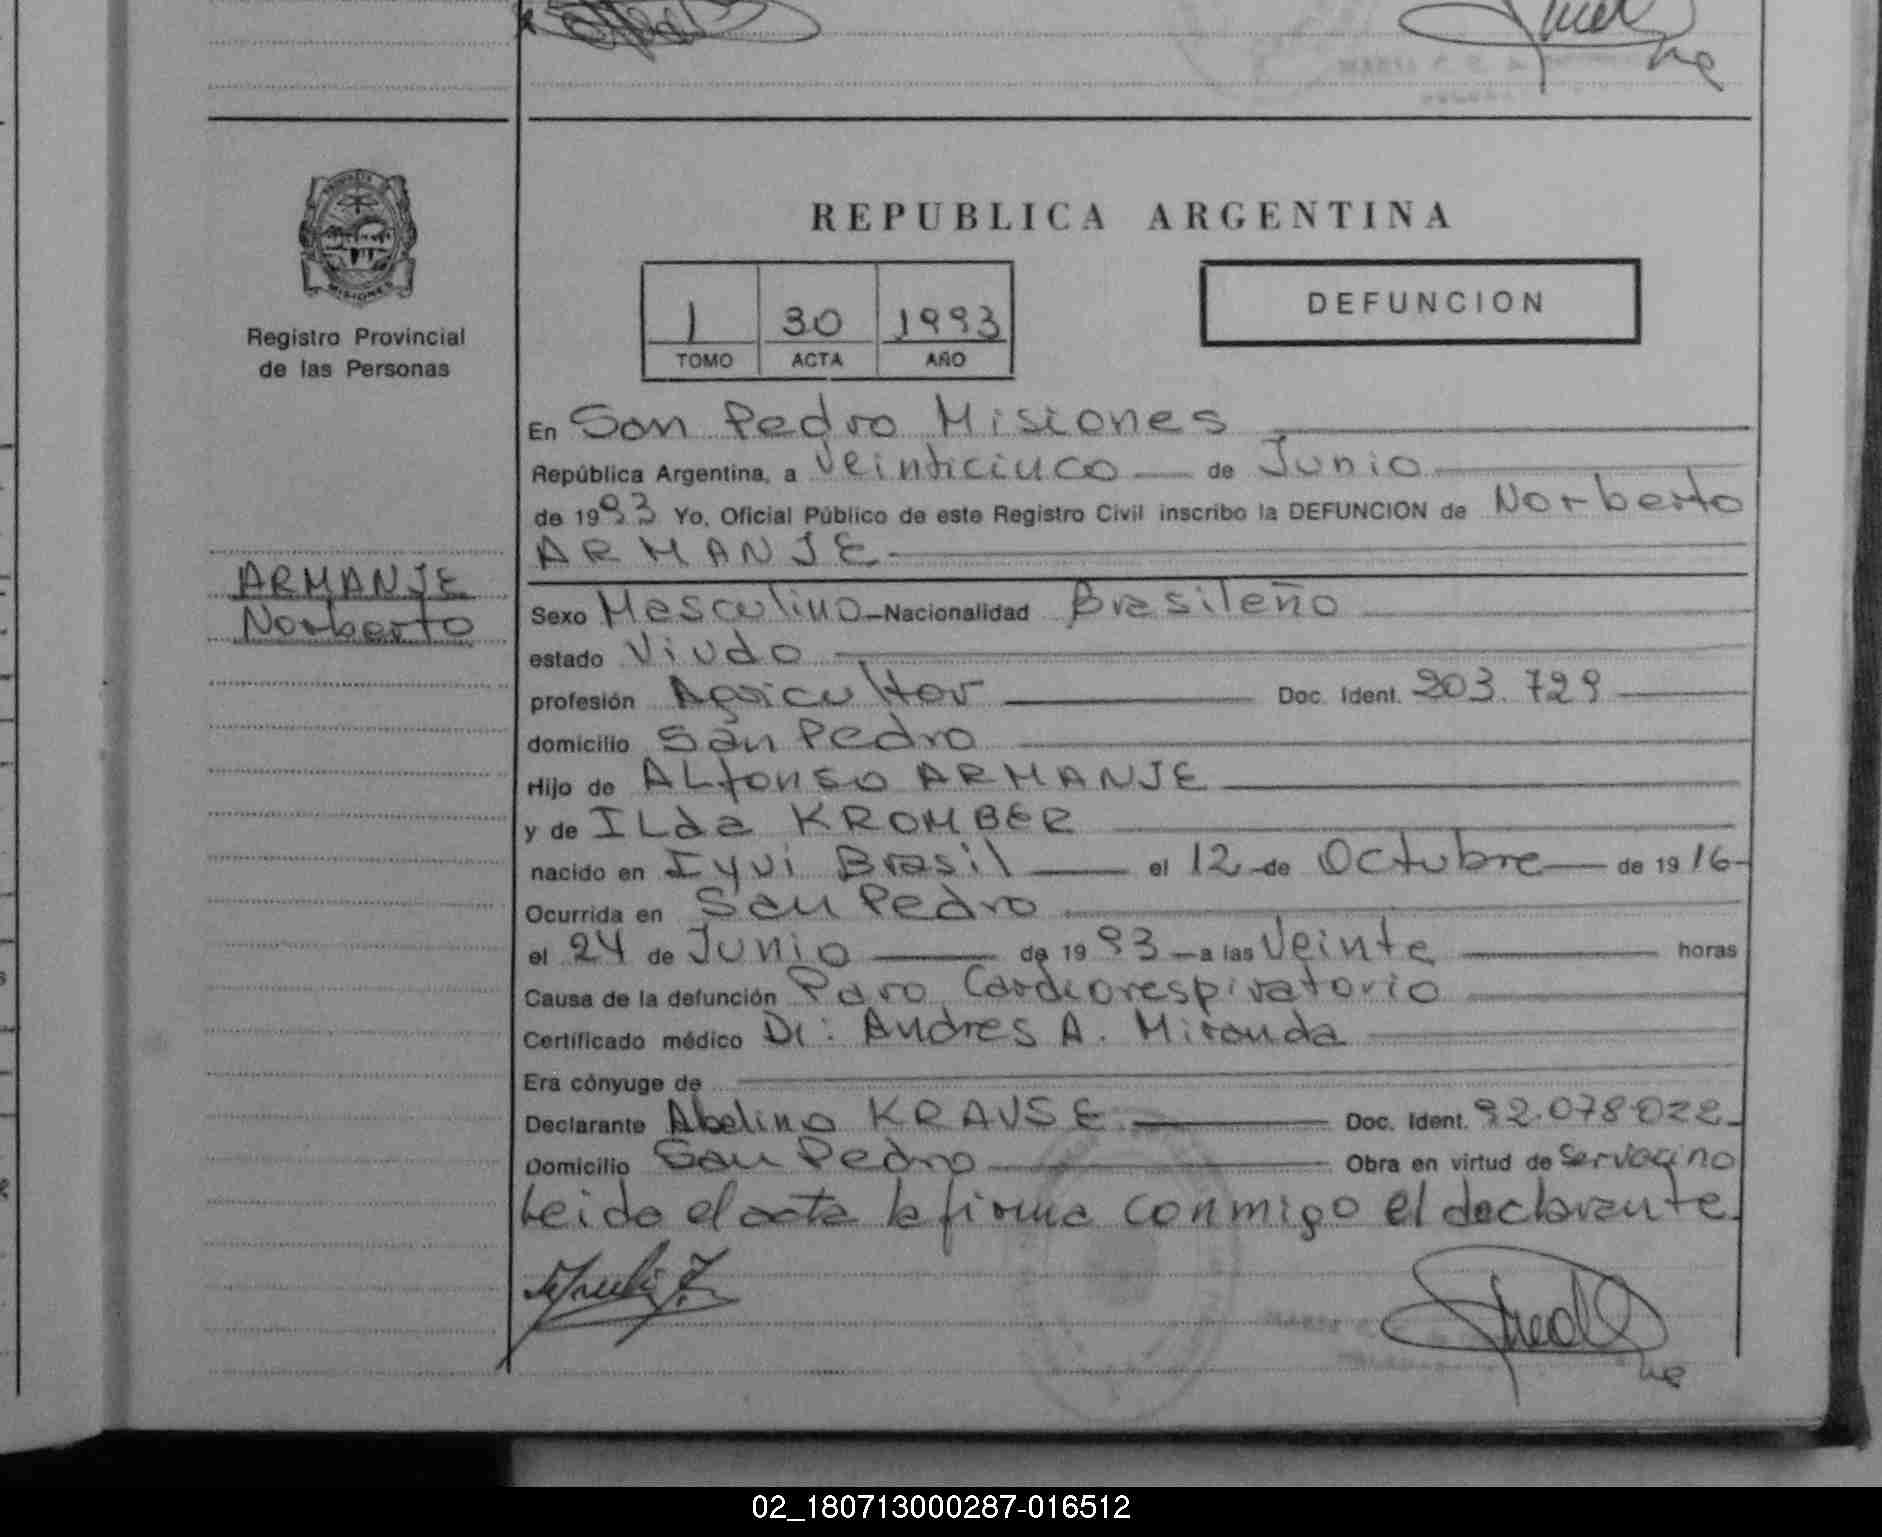 PROVINCIA DE
MISIONES
Registro Provincial
de las Personas
ARMANJE
Norberto
REPUBLICA ARGENTINA
1 30 1993
TOMO ACTA AÑO
DEFUNCION
En San Pedro Misiones
República Argentina, a Veinticinco de Junio
de 1993 Yo, Oficial Público de este Registro Civil inscribo la DEFUNCION de Norberto
ARMANJE
Sexo Masculino Nacionalidad Brasileño
estado Viudo
profesión Agricultor Doc. Ident. 203.729
domicilio San Pedro
Hijo de ALfonso ARMANJE
y de ILda KROMBER
nacido en Iyui Brasil el 12 de Octubre de 1916
Ocurrida en San Pedro
el 24 de Junio de 1993 a las Veinte horas
Causa de la defunción Paro Cardiorespiratorio
Certificado médico Dr: Andres A. Miranda
Era cónyuge de
Declarante Abelino KRAUSE Doc. Ident. 92.078.022
Domicilio San Pedro Obra en virtud de Ser vecino
Leida el acta la firma conmigo el declarante
02_180713000287-016512